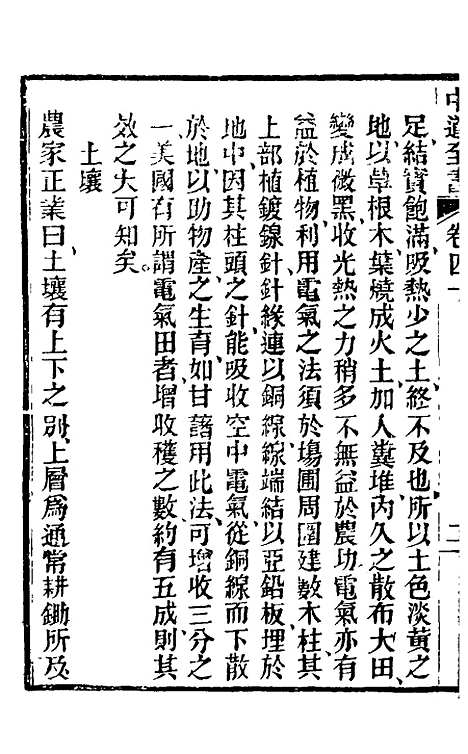 足結實飽滿吸熱少之土終不及也所以土色淡黃之
地以草根木葉燒成火土加入糞堆內久之散布大田
變成微黑收光熱之力稍多不無益於農功電氣亦有
益於植物利用電氣之法須於場圃周圍建數木柱其
上部植鍍鎳針針緣連以銅線線端結以亞鉛板埋於
地中因其柱頭之針能吸收空中電氣從銅線而下散
於地以助物產之生育如甘藷用此法可增收三分之
一美國有所謂電氣田者增收穫之數約有五成則其
效之大可知矣
土壤
農家正業曰土壤有上下之別上層爲通常耕鋤所及